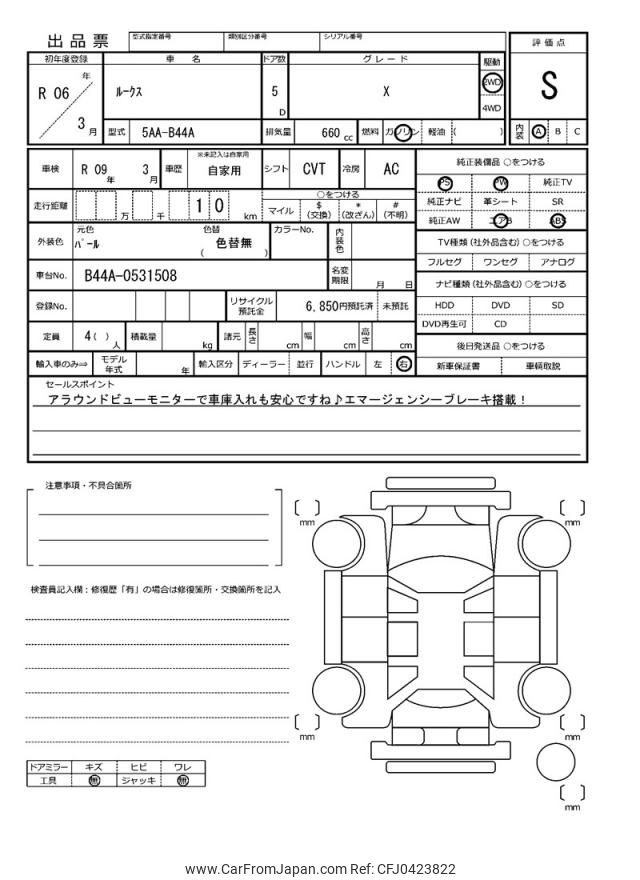 出品票 型式指定番号 類別区分番号 シリアル番号
初年度登録 車名 ドア数 グレード 駆動 評価点
R 06 年 3 月 ルークス 5 D X 2WD 4WD S
型式 5AA-B44A 排気量 660 cc 燃料 ガソリン 軽油 ( ) 内装 A B C
車検 R 09 年 3 月 車歴 ※未記入は自家用 自家用 シフト CVT 冷房 AC 純正装備品 ○をつける
PS PW 純正TV
走行距離 万 千 1 0 km ○をつける マイル $ (交換) * (改ざん) # (不明) 純正ナビ 革シート SR
純正AW エアB ABS
外装色 元色 パール 色替 色替無 ( ) カラーNo. 内装色 TV種類 (社外品含む) ○をつける
フルセグ ワンセグ アナログ
車台No. B44A-0531508 名変期限 月 日 ナビ種類 (社外品含む) ○をつける
登録No. リサイクル預託金 6,850円預託済 未預託 HDD DVD SD
DVD再生可 CD
定員 4 ( ) 人 積載量 kg 諸元 長さ cm 幅 cm 高さ cm 後日発送品 ○をつける
輸入車のみ⇒ モデル年式 年 輸入区分 ディーラー 並行 ハンドル 左 右 新車保証書 車輌取説
セールスポイント
アラウンドビューモニターで車庫入れも安心ですね♪エマージェンシーブレーキ搭載！
注意事項・不具合箇所
mm mm
検査員記入欄：修復歴「有」の場合は修復箇所・交換箇所を記入
mm mm
ドアミラー キズ ヒビ ワレ
工具 無 ジャッキ 無
mm
www.CarFromJapan.com Ref: CFJ0423822